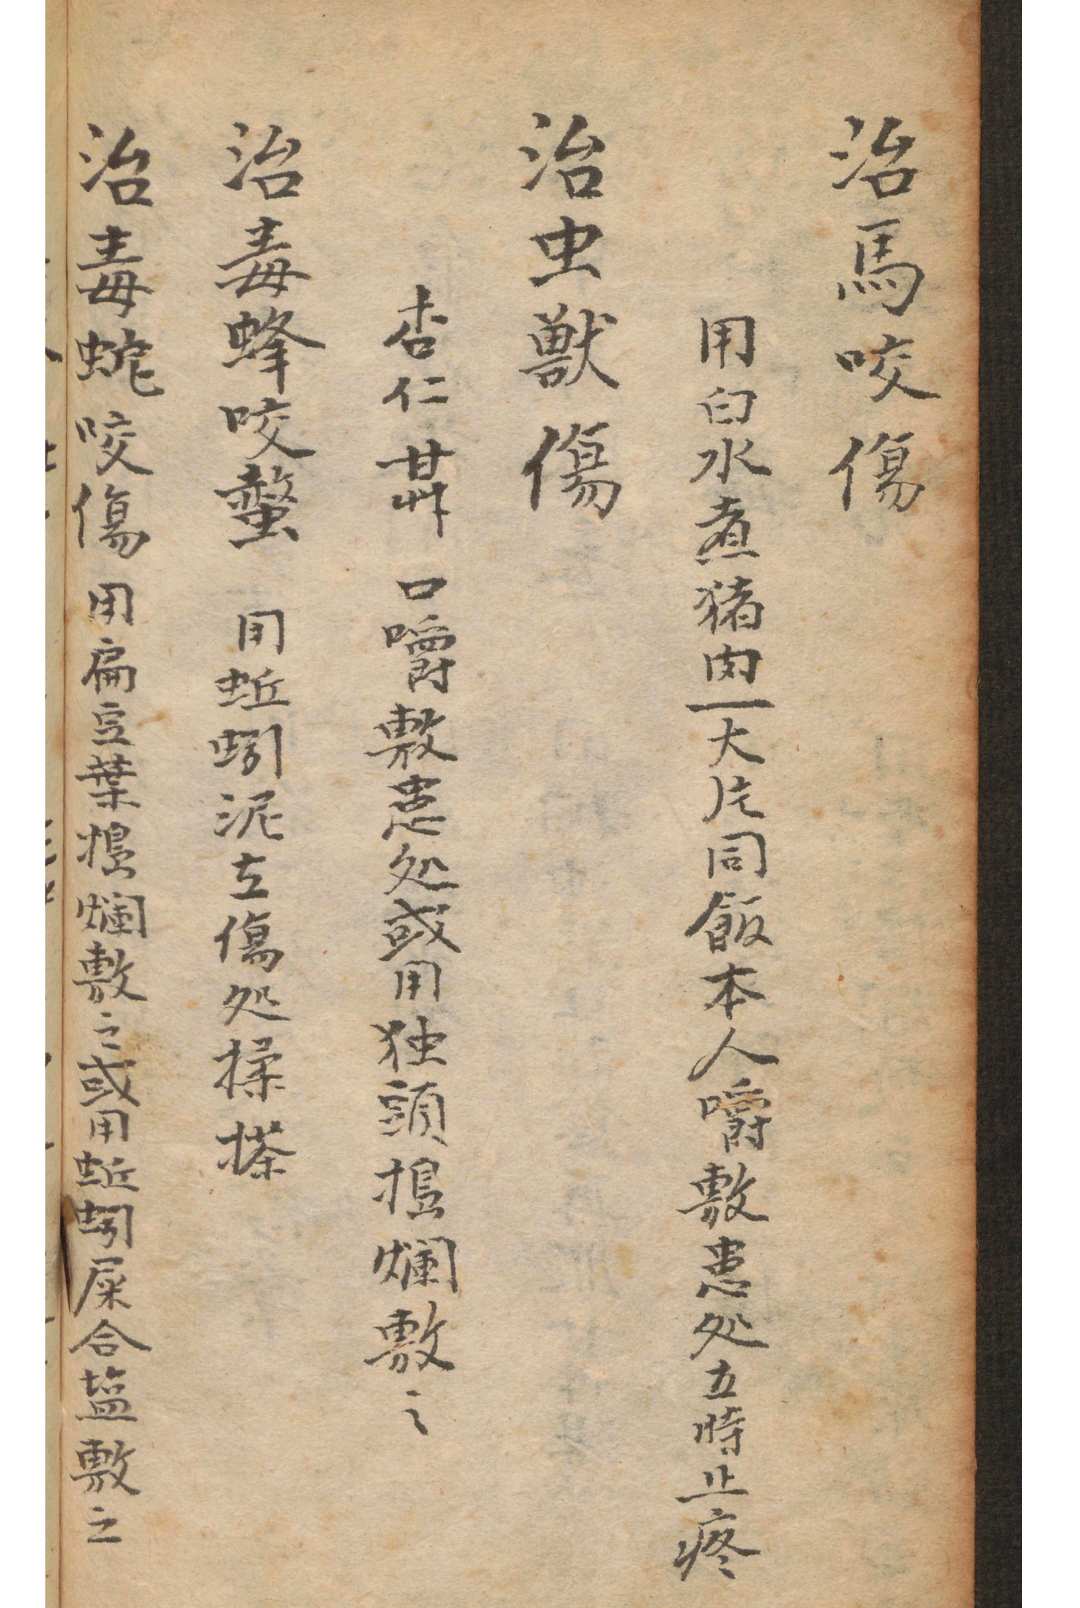 治馬咬傷
用白水煮猪肉一大片同飯本人嚼敷患处立時止疼
治虫獸傷
杏仁甘艸 口嚼敷患处或用独頭搗爛敷之
治毒蜂咬螫 用蚯蚓泥在傷处揉搽
治毒蛇咬傷 用扁豆葉搗爛敷之或用蚯蚓屎合塩敷之